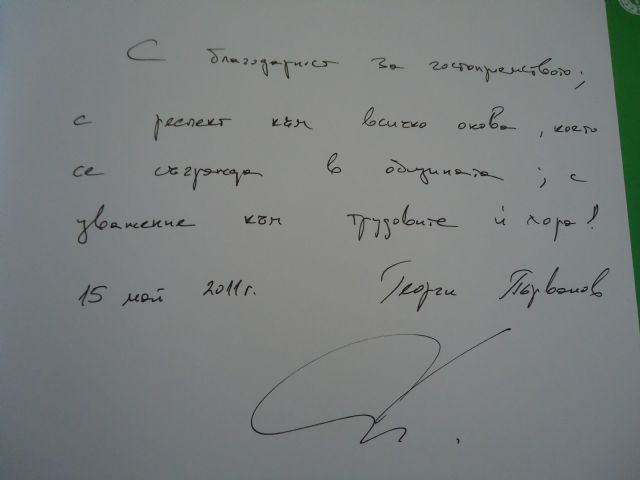 С благодарност за гостоприемството;
с респект към всичко онова, което
се съгражда в общината; с
уважение към трудовите ѝ хора!
15 май 2011г. Георги Първанов